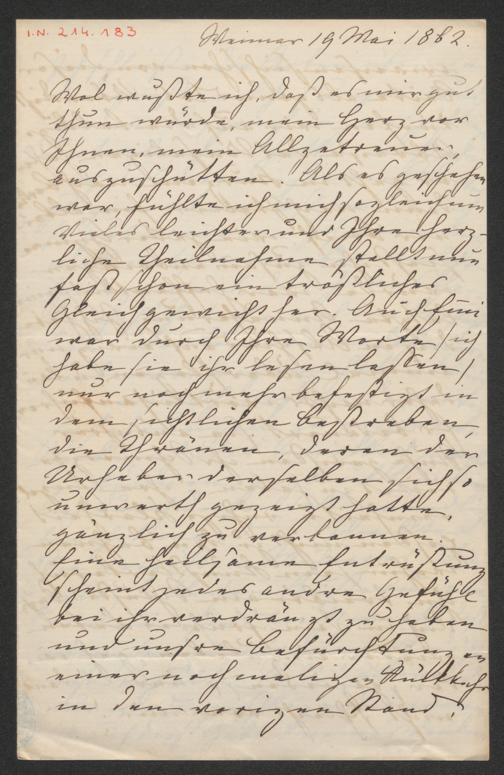 I.N. 214.183
Weimar 19 Mai 1862.
Wol wußte ich, daß es mir gut
thun würde, mein Herz vor
Ihnen, mein Allgetreuer,
auszuschütten. Als es geschehen
war, fühlte ich mich sogleich um
Vieles leichter und Ihre herz-
liche Theilnahme stellt nun
fast schon ein tröstliches
Gleichgewicht her. Auch
war durch Ihre Worte (ich
habe sie ihr lesen lassen)
nur noch mehr befestigt in
dem sichtlichen Bestreben,
die Thränen, deren der
Urheber derselben sich so
unwerth gezeigt hatte,
gänzlich zu verbannen.
Eine heilsame Entrüstung
scheint jedes andre Gefühl
bei ihr verdrängt zu haben
und unsre Befürchtungen
einer nochmaligen Rückkehr
in den vorigen Stand,